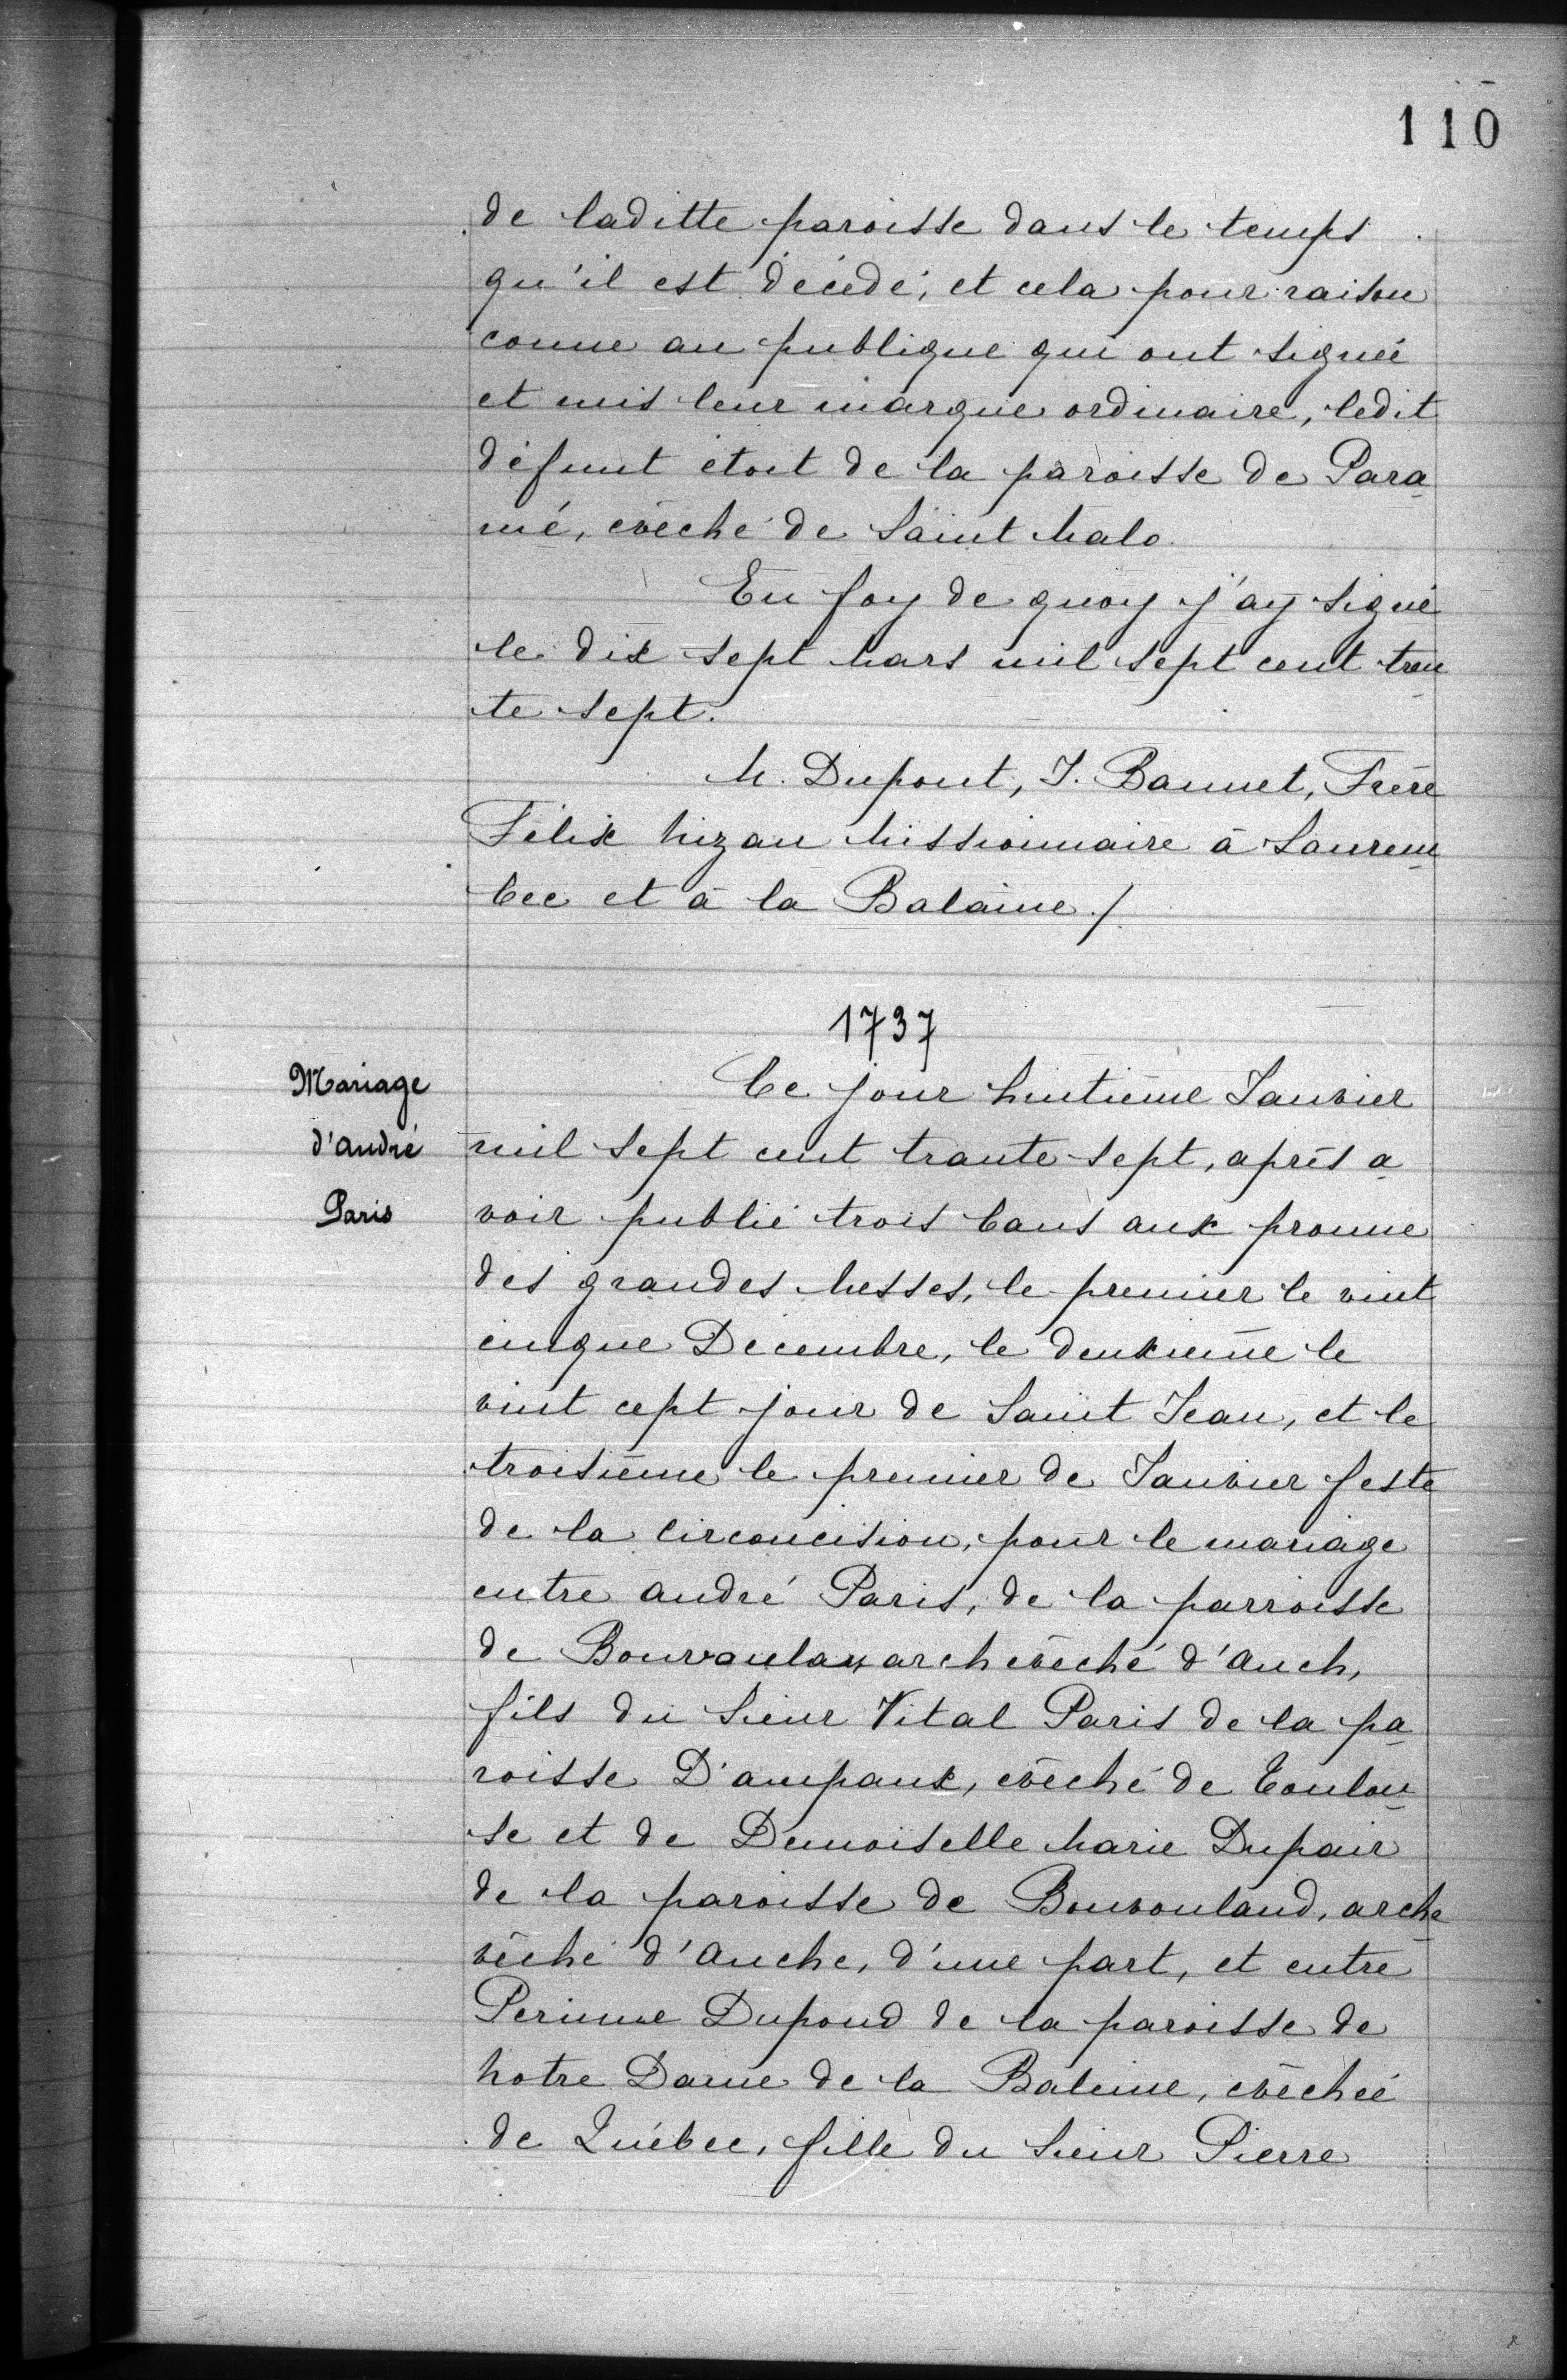 110
de laditte paroisse dans le temps
qu'il est décédé, et cela pour raison
conue au publique qui ont signée
et mis leur marque ordinaire, ledit
défunt étoit de la paroisse de Para
mé, evêché de Saint Malo.
En foy de quoy j'ay signé
le dix sept Mars mil sept cent tren
te sept.
M. Dupont, J. Bannet, Frère
Félix Nizan Missionnaire à Lauren
bec et à la Balaine ./.
1737
Mariage
d'andré
Paris
Ce jour huitième Janvier
mil sept cent trante sept, après a
voir publié trois bans aux pronne
des grandes Messes, le premier le vint
cinque Decembre, le deuxième le
vint cept jour de Saint Jean, et le
troisième le premier de Janvier feste
de la Circoncision, pour le mariage
entre andré Paris, de la parroisse
de Bouvoulan archevêché d'auch,
fils du Sieur Vital Paris de la pa
roisse D'ampaux, evêché de Toulou
se et de Demoiselle Marie Dupair
de la paroisse de Bouvouland, arche
vêché d'auche, d'une part, et entre
Perinne Dupond de la paroisse de
Notre Dame de la Baleine, evêchéé
de Québec, fille du Sieur Pierre